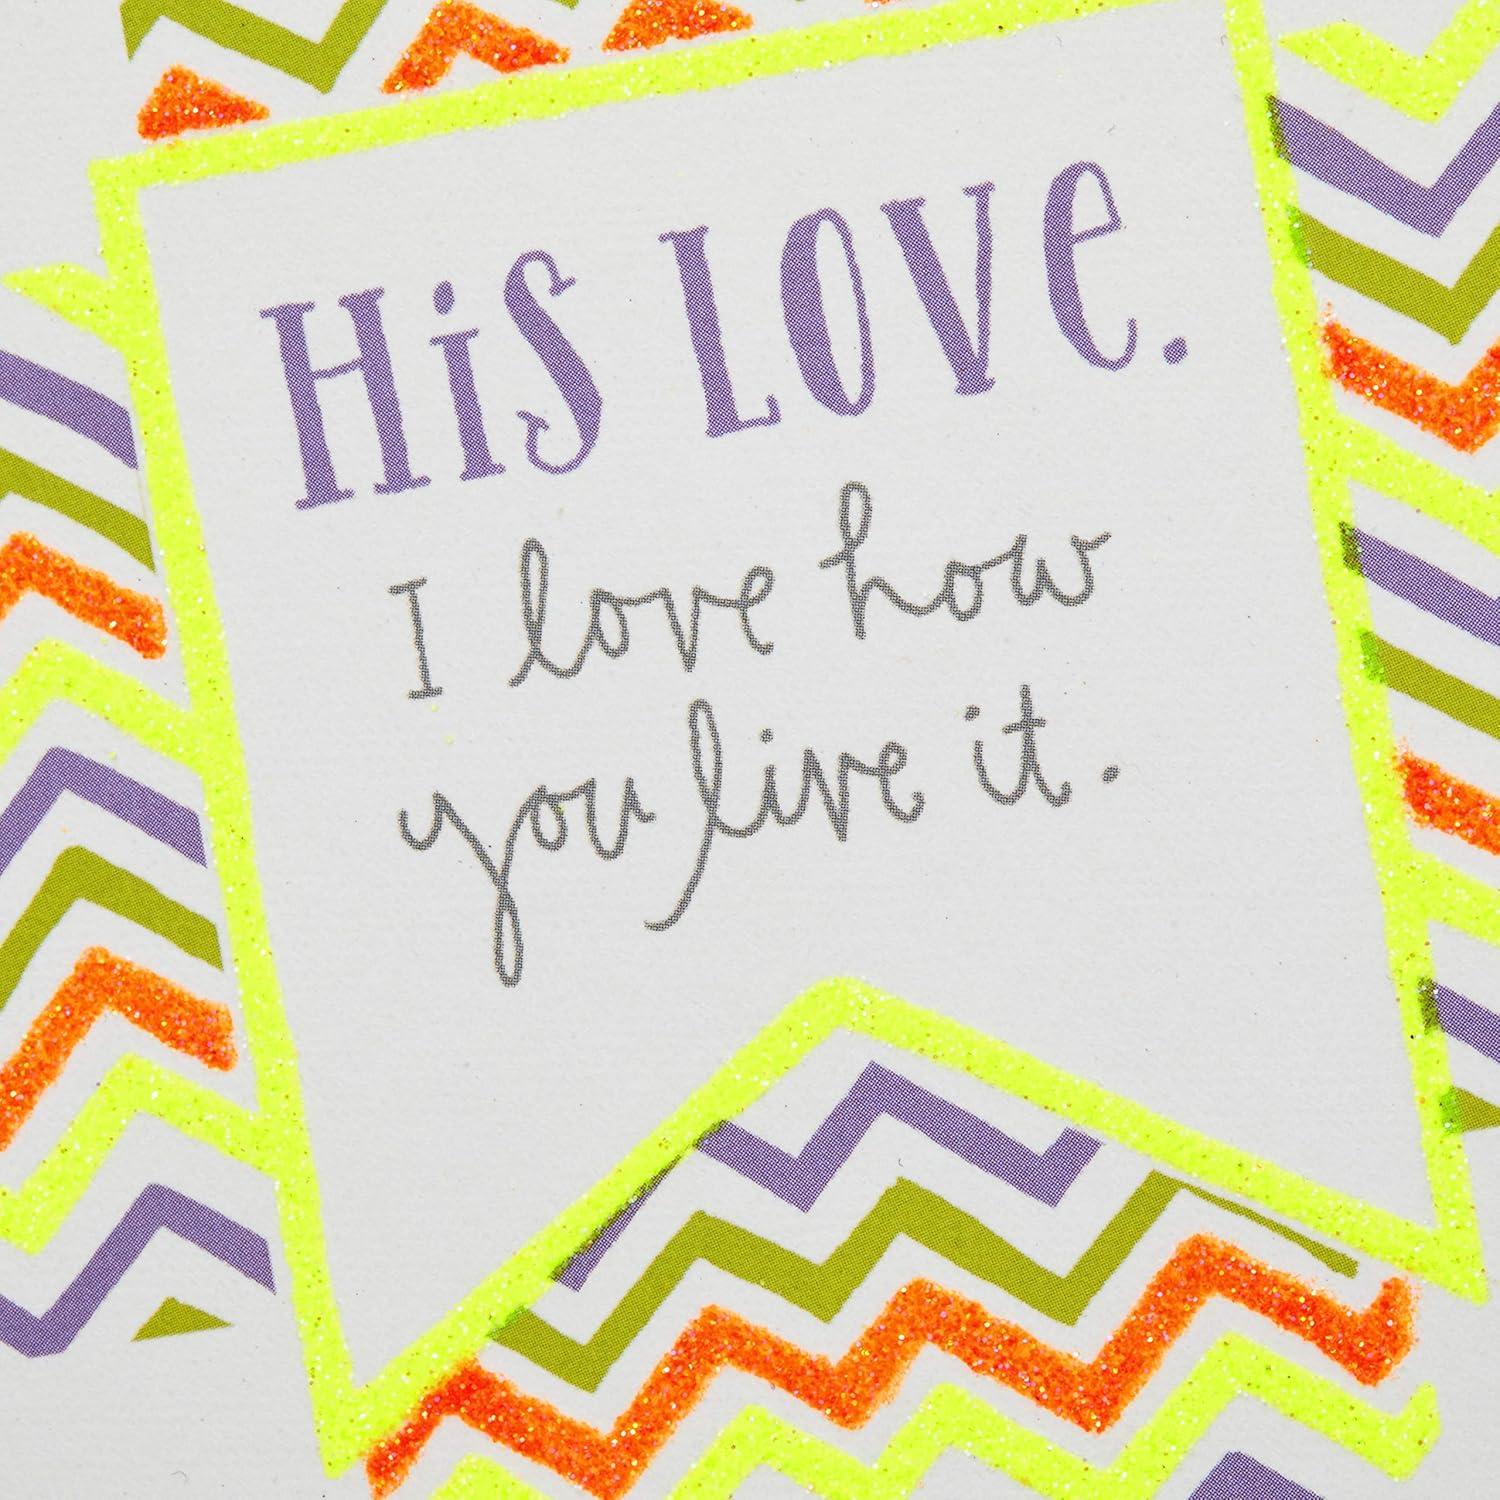 His Love.
I love how
you live it.